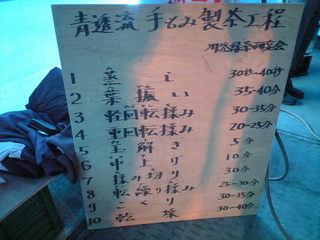 青透流 手もみ製茶工程
1 蒸し 30秒~40秒
2 葉振い 35-40分
3 軽回転揉み 30-35分
4 重回転揉み 20-25分
5 玉解き 5分
6 中上げ 10分
7 揉み切り 30分
8 転繰り揉み 25-30分
9 こくり 30-35分
10 乾燥 30-40分